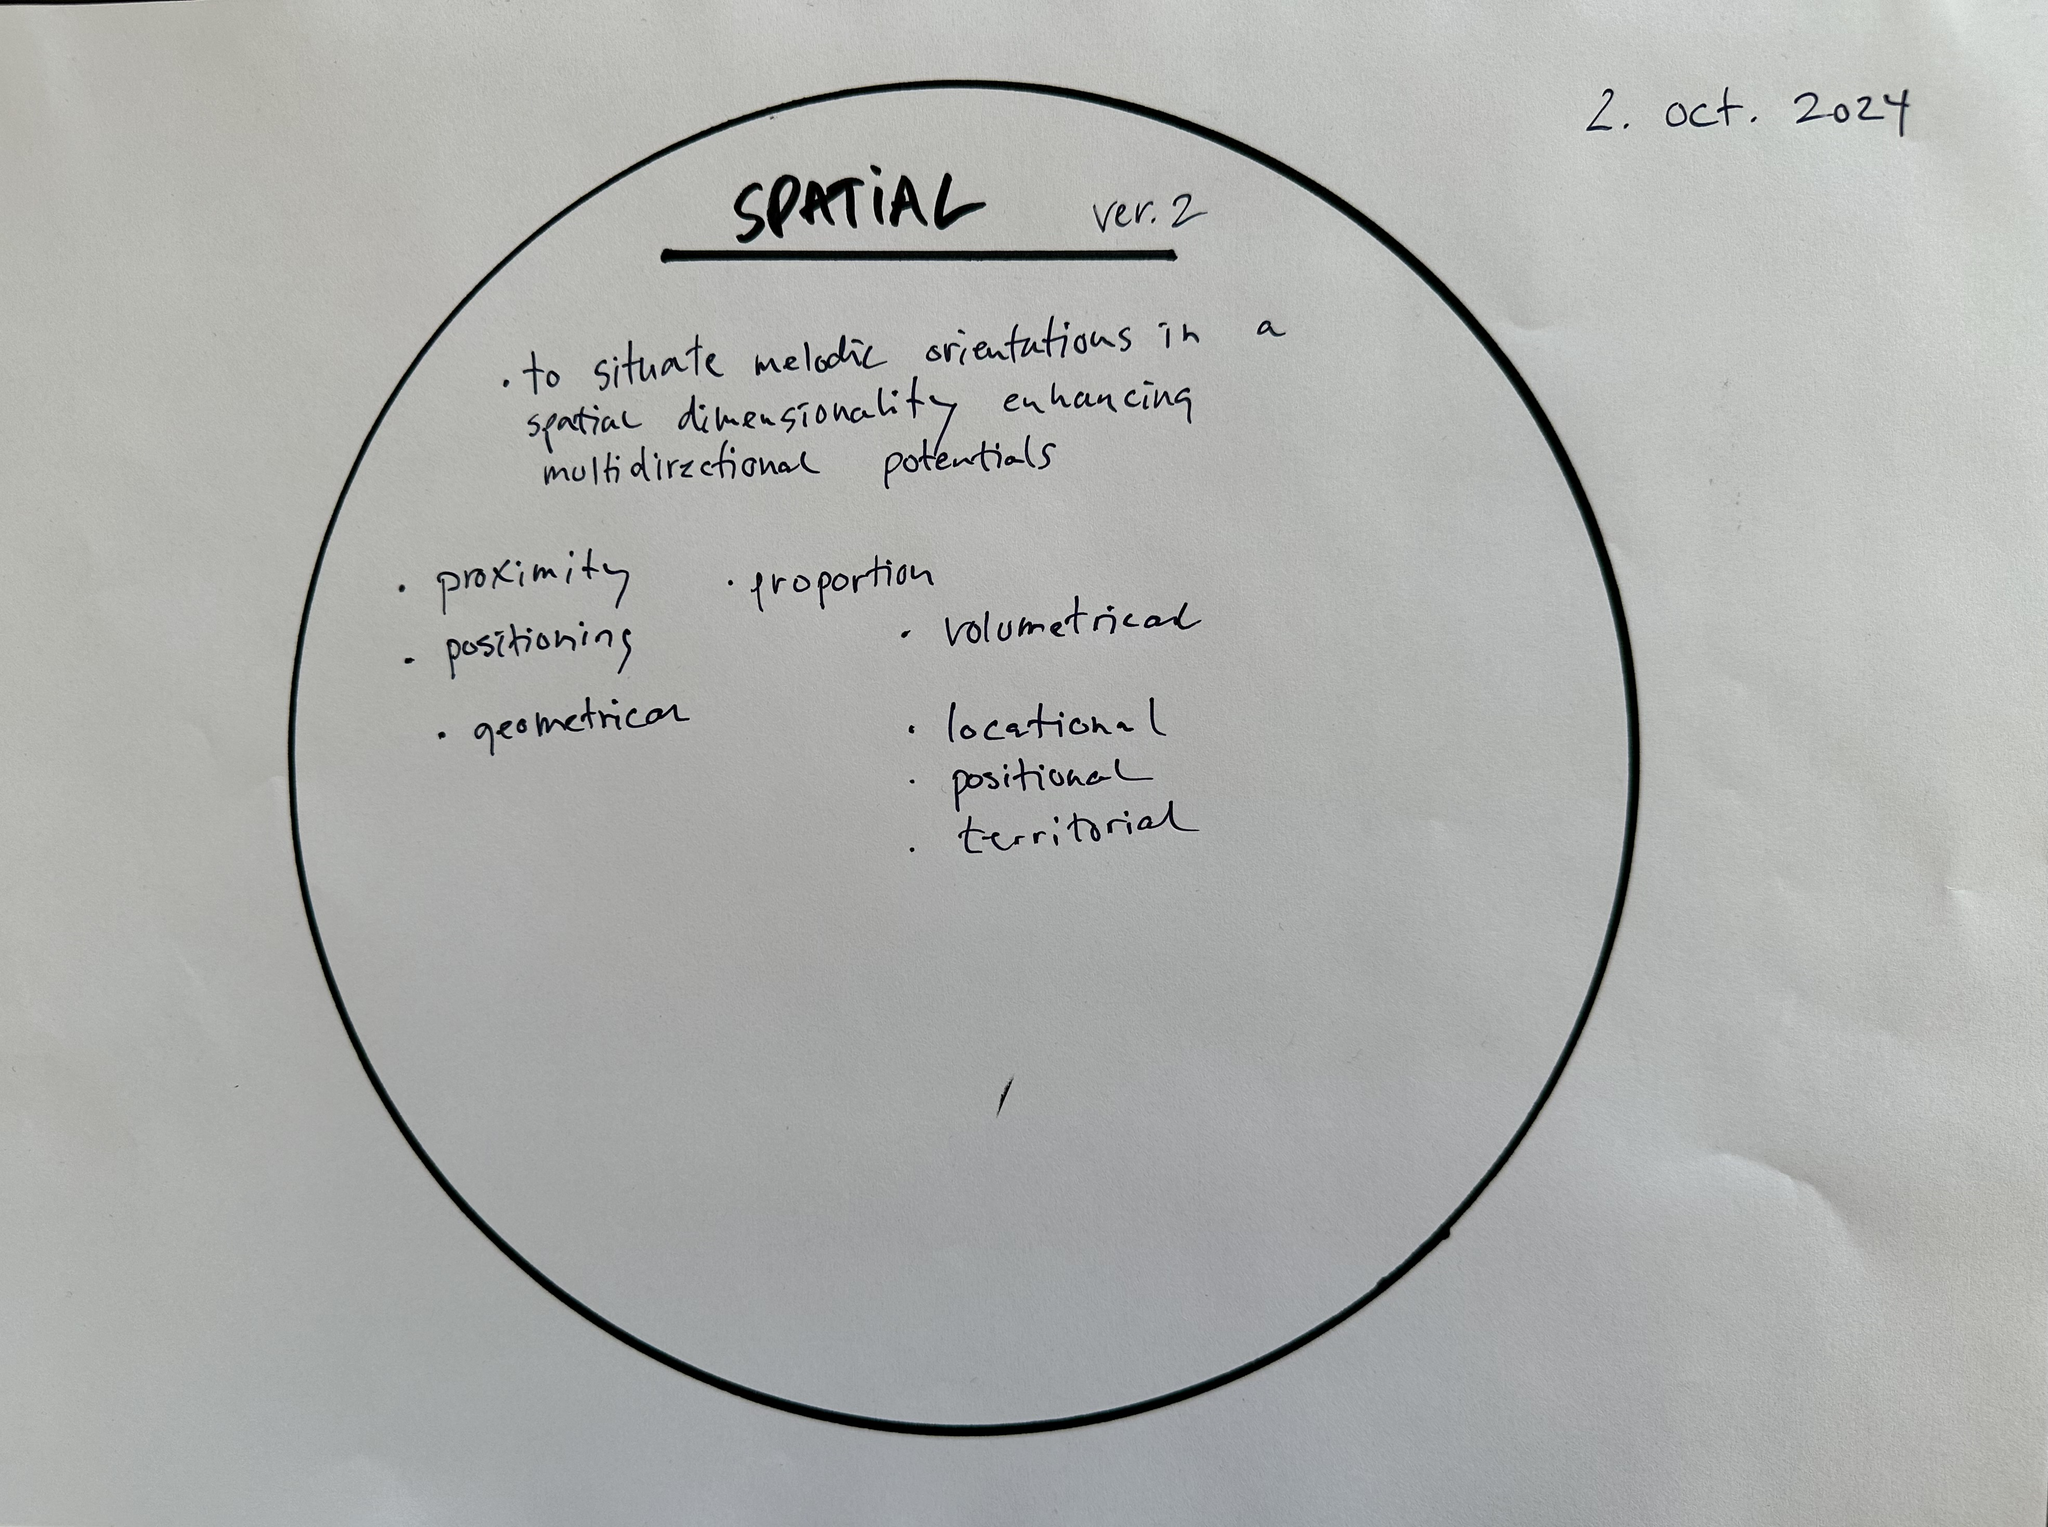 2. oct. 2024
SPATiAL ver. 2
· to situate melodic orientations in a
spatial dimensionality enhancing
multidirectional potentials
· proximity · proportion
· volumetrical
· positioning
· geometrical · locational
· positional
· territorial